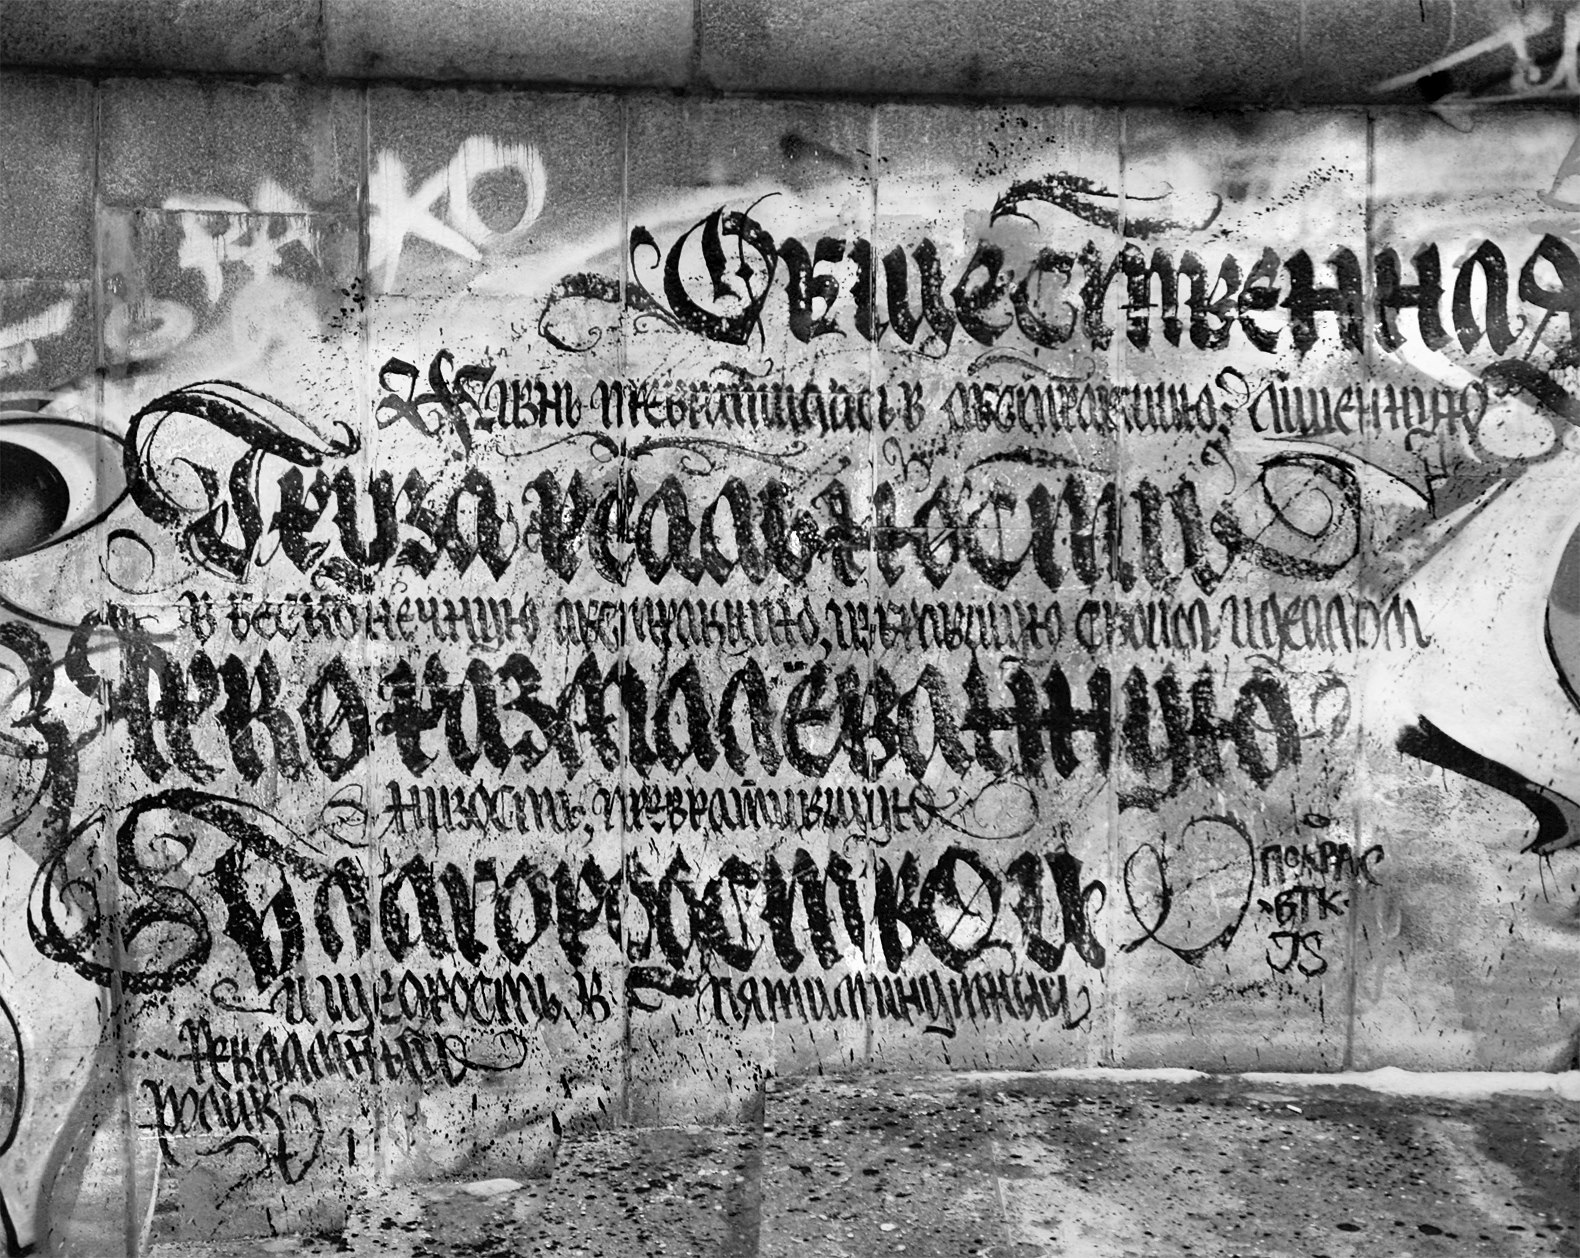 КО
Общественная
Жизнь превратилась в абстракцию, лишенную
Трива реальности
в бесконечную абстракцию, избравшую своим идеалом
Яркоизмалеванную
низость, превратившую
Благородство и
и щедрость в пятиминутный
...рекламный
ролик
ПОКРАС
ВТК
JS